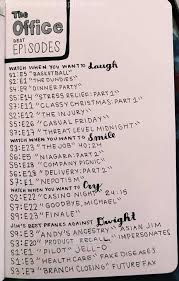 The
Office
BEST
EPISODES
WATCH WHEN YOU WANT TO Laugh
S2:E5 "BASKETBALL"
S2:E1 "THE DUNDIES"
S4:E9 "DINNER PARTY"
S5:E14 "STRESS RELIEF: PART 1"
S7:E11 "CLASSY CHRISTMAS: PART 1"
S2:E12 "THE INJURY"
S5:E26 "CASUAL FRIDAY"
S7:E17 "THREAT LEVEL MIDNIGHT"
WATCH WHEN YOU WANT TO Smile
S3:E23 "THE JOB" 40:24
S6:E4 "NIAGARA: PART 1"
S5:E28 "COMPANY PICNIC"
S6:E17 "THE DELIVERY: PART 1"
S7:E1 "NEPOTISM"
WATCH WHEN YOU WANT TO Cry
S2:E22 "CASINO NIGHT" 24:15
S7:E22 "GOODBYE, MICHAEL"
S9:E23 "FINALE"
JIM'S BEST PRANKS AGAINST Dwight
S9:E3 "ANDY'S ANCESTRY" ASIAN JIM
S3:E20 "PRODUCT RECALL" IMPERSONATES
S1:E1 "PILOT" JELL-O
S1:E3 "HEALTHCARE" FAKE DISEASES
S3:E7 "BRANCH CLOSING" FUTURE FAX